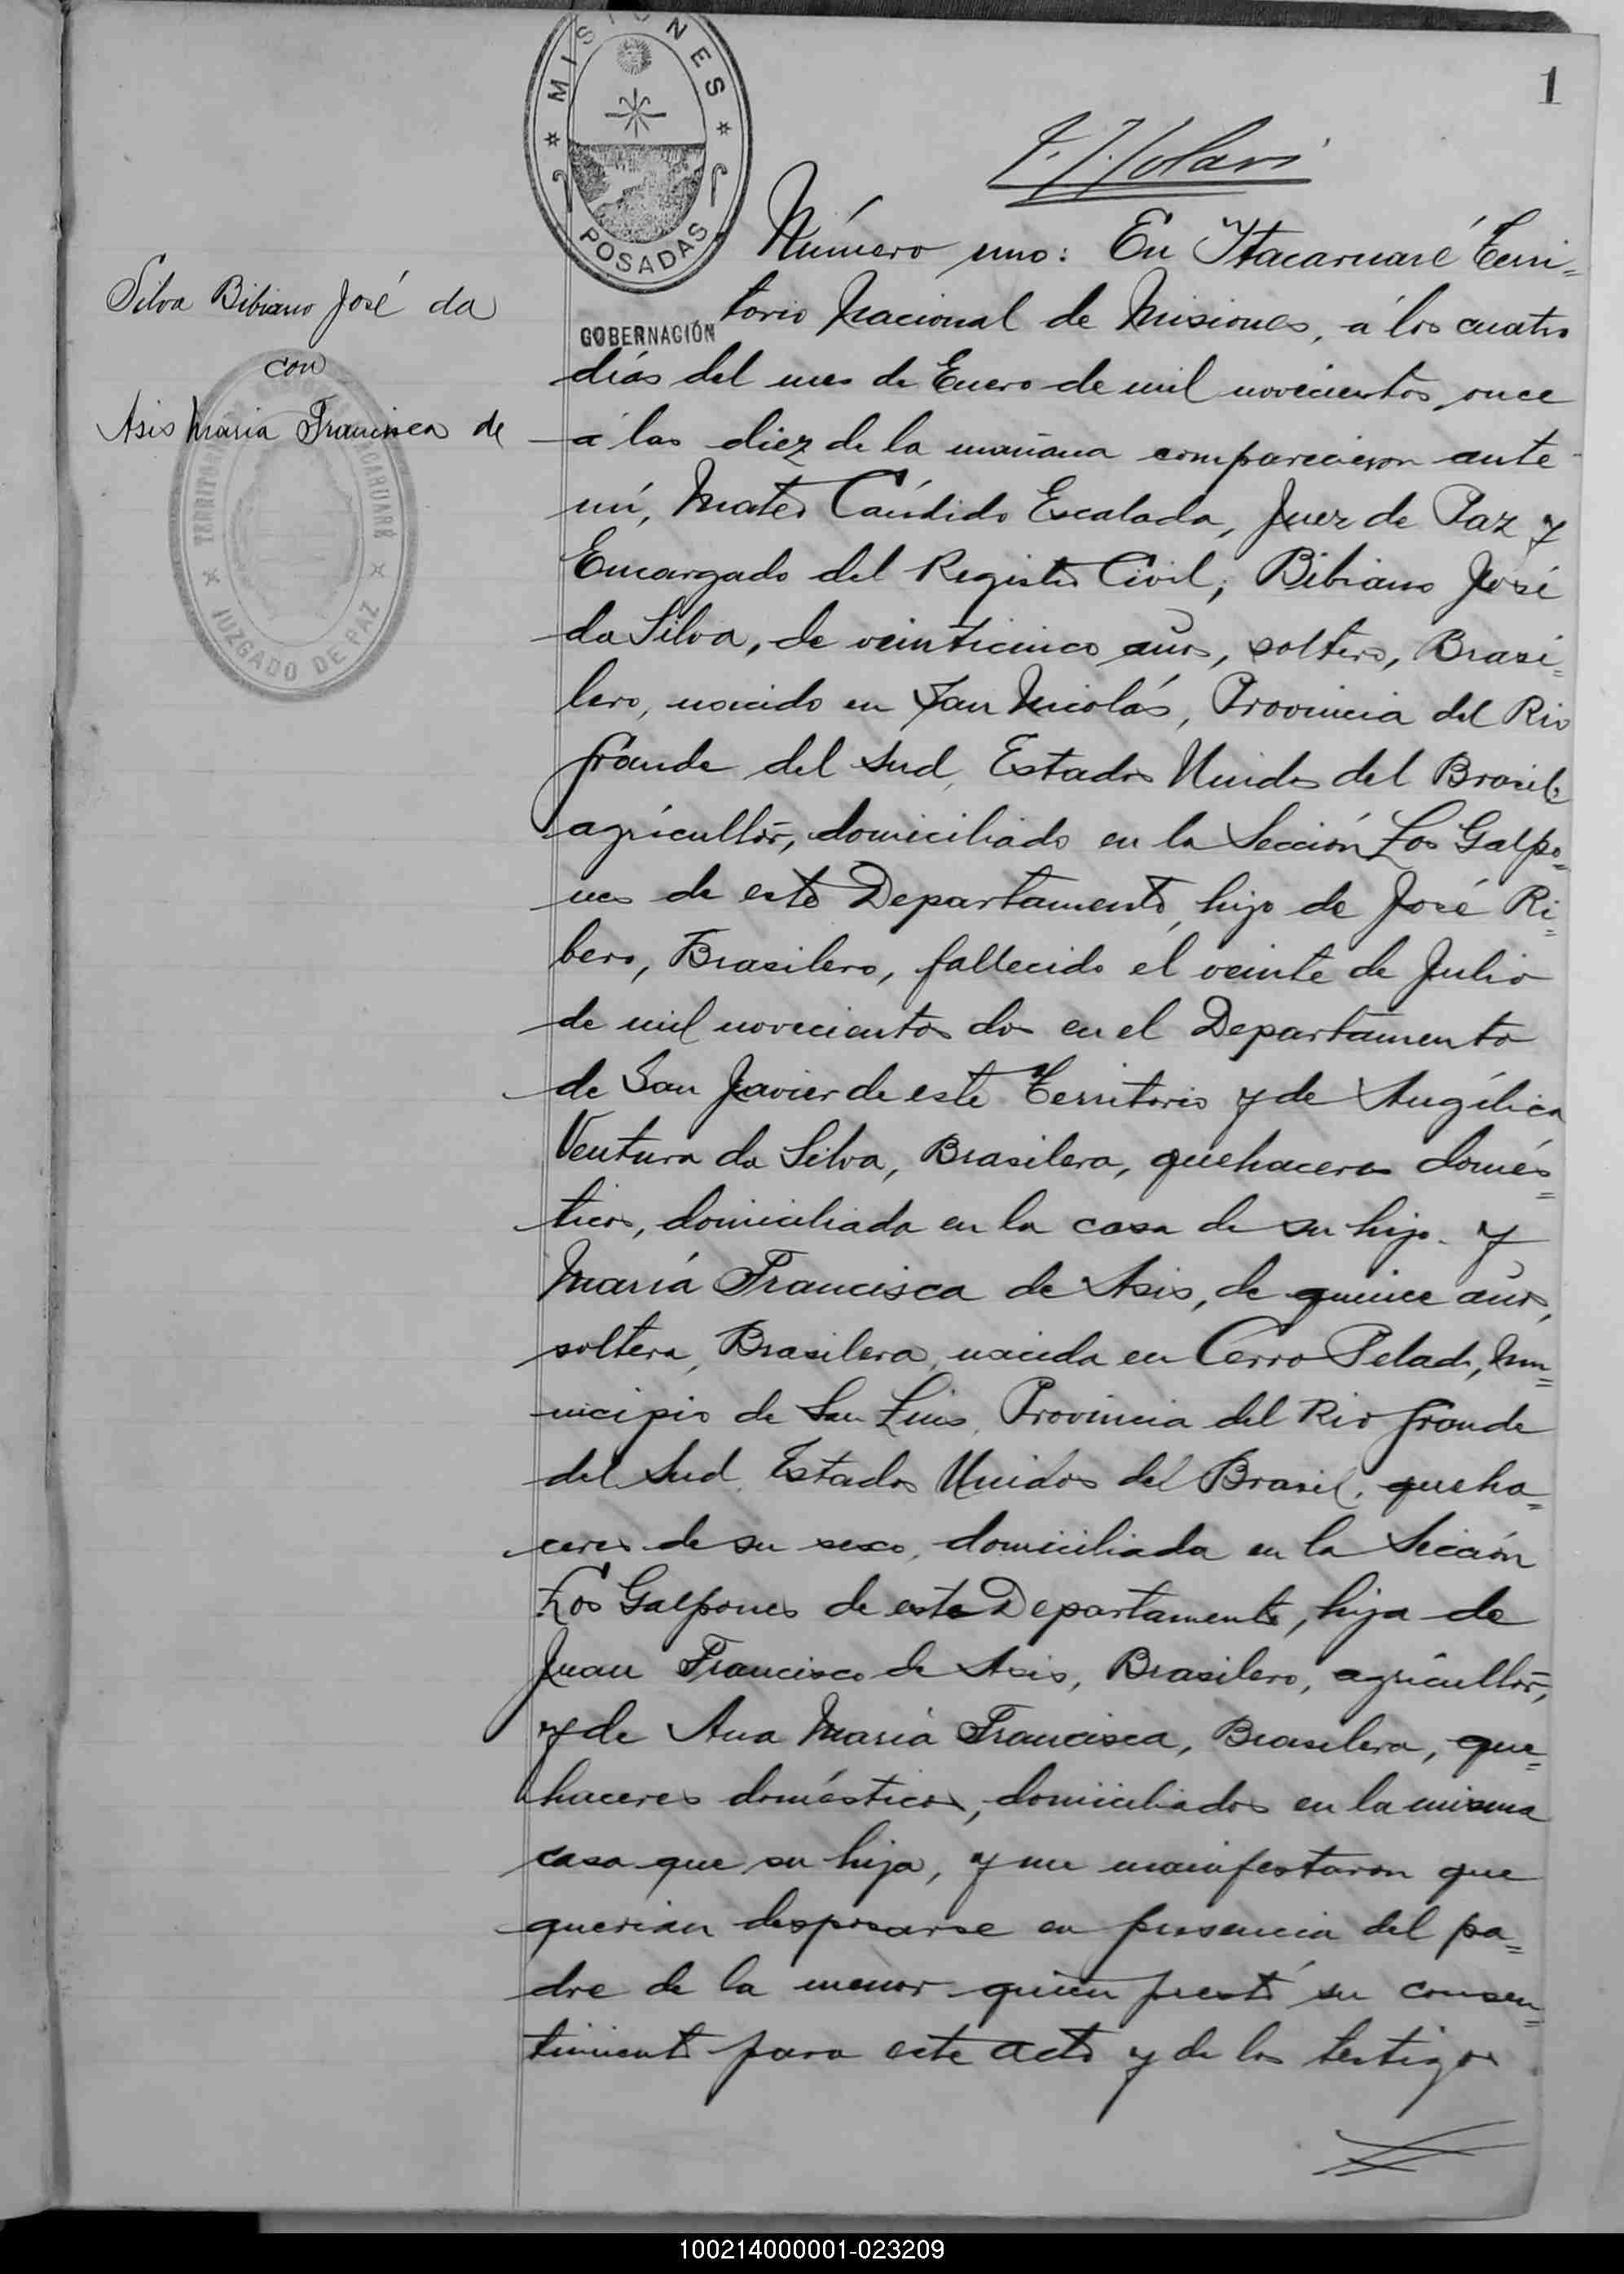 1
MISIONES
POSADAS
GOBERNACIÓN
Silva Bibiano José da
con
Asis Maria Francisca de
TERRITORIO
ITACARUARÉ
JUZGADO DE PAZ
Número uno: En Ytacaruaré Terri=
torio Nacional de Misiones, á los cuatro
días del mes de Enero de mil novecientos once
á las diez de la mañana comparecieron ante
mí, Mateo Cándido Escalada, Juez de Paz y
Encargado del Registro Civil; Bibiano José
da Silva, de veinticinco años, soltero, Brasi=
lero, nacido en San Nicolás, Provincia del Rio
Grande del Sud, Estados Unidos del Brasil,
agricultor, domiciliado en la Sección Los Galpo=
nes de este Departamento, hijo de José Ri=
bero, Brasilero, fallecido el veinte de Julio
de mil novecientos dos en el Departamento
de San Javier de este Territorio y de Angélica
Ventura da Silva, Brasilera, quehaceres domés=
ticos, domiciliada en la casa de su hijo. y
María Francisca de Asis, de quince años,
soltera, Brasilera, nacida en Cerro Pelado, Mu=
nicipio de San Luis, Provincia del Rio Grande
del Sud, Estados Unidos del Brasil, queha=
ceres de su sexo, domiciliada en la Sección
Los Galpones de este Departamento, hija de
Juan Francisco de Asis, Brasilero, agricultor,
y de Ana María Francisca, Brasilera, que=
haceres domésticos, domiciliados en la misma
casa que su hija, y me manifestaron que
querian desposarse en presencia del pa=
dre de la menor quien prestó su consen=
timiento para este acto y de los testigos
100214000001-023209